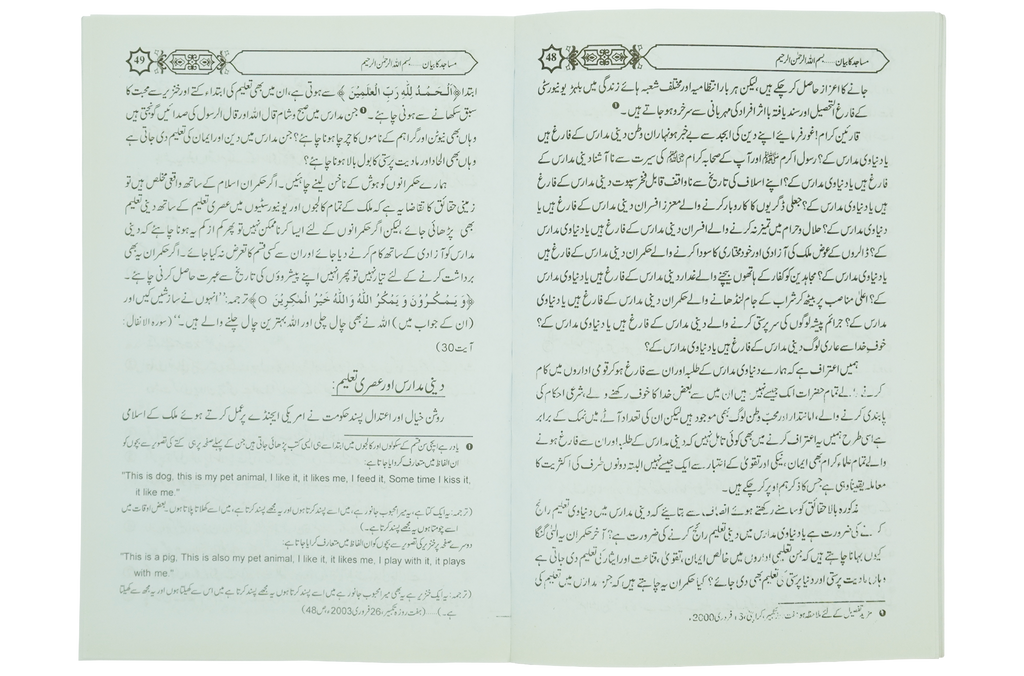 48
مساجد کا بیان ..... بسم اللہ الرحمٰن الرحیم
جانے کا اعزاز حاصل کر چکے ہیں، لیکن ہر بار انتظامیہ اور مختلف شعبہ ہائے زندگی میں بلہڑ یونیورسٹی
کے فارغ التحصیل اور سند یافتہ با اثر افراد کی مہربانی سے سرخرو ہو جاتے ہیں۔ ❶
قارئین کرام! غور فرمائیے اپنے دین کی ابجد سے بے خبر ہونہاران وطن دینی مدارس کے فارغ ہیں
یا دنیاوی مدارس کے؟ رسول اکرم ﷺ اور آپ کے صحابہ کرام کی سیرت سے نا آشنا دینی مدارس کے
فارغ ہیں یا دنیاوی مدارس کے؟ اپنے اسلاف کی تاریخ سے ناواقف قابل فخر سپوت دینی مدارس کے فارغ
ہیں یا دنیاوی مدارس کے؟ جعلی ڈگریوں کا کاروبار کرنے والے معزز افسران دینی مدارس کے فارغ ہیں یا
دنیاوی مدارس کے؟ حلال و حرام میں تمیز نہ کرنے والے افسران دینی مدارس کے فارغ ہیں یا دنیاوی مدارس
کے؟ ڈالروں کے عوض ملک کی آزادی اور خود مختاری کا سودا کرنے والے حکمران دینی مدارس کے فارغ ہیں
یا دنیاوی مدارس کے؟ مجاہدین کو کفار کے ہاتھوں بیچنے والے غدار دینی مدارس کے فارغ ہیں یا دنیاوی مدارس
کے؟ اعلیٰ مناصب پر بیٹھ کر شراب کے جام لنڈھانے والے حکمران دینی مدارس کے فارغ ہیں یا دنیاوی
مدارس کے؟ جرائم پیشہ لوگوں کی سرپرستی کرنے والے دینی مدارس کے فارغ ہیں یا دنیاوی مدارس کے؟
خوف خدا سے عاری لوگ دینی مدارس کے فارغ ہیں یا دنیاوی مدارس کے؟
ہمیں اعتراف ہے کہ ہمارے دنیاوی مدارس کے طلبہ اور ان سے فارغ ہو کر قومی اداروں میں کام
کرنے والے تمام حضرات ایک جیسے نہیں ہیں ان میں سے بعض خدا کا خوف رکھنے والے، شرعی احکام کی
پابندی کرنے والے، امانتدار اور محب وطن لوگ بھی موجود ہیں لیکن ان کی تعداد آٹے میں نمک کے برابر
ہے اسی طرح ہمیں یہ اعتراف کرنے میں بھی کوئی تامل نہیں کہ دینی مدارس کے طلبہ اور ان سے فارغ ہونے
والے تمام علماء کرام بھی ایمان، نیکی اور تقویٰ کے اعتبار سے ایک جیسے نہیں البتہ دونوں طرف کی اکثریت کا
معاملہ یقیناً وہی ہے جس کا ذکر ہم اوپر کر چکے ہیں۔
مذکورہ بالا حقائق کو سامنے رکھتے ہوئے انصاف سے بتائیے کہ دینی مدارس میں دنیاوی تعلیم رائج
کرنے کی ضرورت ہے یا دنیاوی مدارس میں دینی تعلیم رائج کرنے کی ضرورت ہے؟ آخر حکمران یہ الٹی گنگا
کیوں بہانا چاہتے ہیں کہ جن تعلیمی اداروں میں خالص ایمان، تقویٰ، قناعت اور ایثار کی تعلیم دی جاتی ہے
وہاں مادیت پرستی اور دنیا پرستی کی تعلیم بھی دی جائے؟ کیا حکمران یہ چاہتے ہیں کہ جن مدارس میں تعلیم کی
❶ مزید تفصیل کے لئے ملاحظہ ہو ہفت روزہ تکبیر، کراچی، 3 فروری 2000ء
49
مساجد کا بیان ..... بسم اللہ الرحمٰن الرحیم
ابتدا ﴿اَلْحَمْدُ لِلّٰهِ رَبِّ الْعٰلَمِيْنَ﴾ سے ہوتی ہے، ان میں بھی تعلیم کی ابتداء کتے اور خنزیر سے محبت کا
سبق سکھانے سے ہونی چاہئے۔ ❶ جن مدارس میں صبح و شام قال اللہ اور قال الرسول کی صدائیں گونجتی ہیں
وہاں بھی نیوٹن اور گراہم کے ناموں کا چرچا ہونا چاہئے؟ جن مدارس میں دین اور ایمان کی تعلیم دی جاتی ہے
وہاں بھی الحاد اور مادیت پرستی کا بول بالا ہونا چاہئے؟
ہمارے حکمرانوں کو ہوش کے ناخن لینے چاہئیں۔ اگر حکمران اسلام کے ساتھ واقعی مخلص ہیں تو
زمینی حقائق کا تقاضا یہ ہے کہ ملک کے تمام کالجوں اور یونیورسٹیوں میں عصری تعلیم کے ساتھ دینی تعلیم
بھی پڑھائی جائے، لیکن اگر حکمرانوں کے لئے ایسا کرنا ممکن نہیں تو پھر کم از کم یہ ہونا چاہئے کہ دینی
مدارس کو آزادی کے ساتھ کام کرنے دیا جائے اور ان سے کسی قسم کا تعرض نہ کیا جائے۔ اگر حکمران یہ بھی
برداشت کرنے کے لئے تیار نہیں تو پھر انہیں اپنے پیشروؤں کی تاریخ سے عبرت حاصل کرنی چاہئے۔
﴿وَ يَمْكُرُوْنَ وَ يَمْكُرُ اللّٰهُ وَ اللّٰهُ خَيْرُ الْمٰكِرِيْنَ ○﴾ ترجمہ: ”انہوں نے سازشیں کیں اور
(ان کے جواب میں) اللہ نے بھی چال چلی اور اللہ بہترین چال چلنے والے ہیں۔“ (سورۃ الانفال:
آیت 30)
دینی مدارس اور عصری تعلیم:
روشن خیال اور اعتدال پسند حکومت نے امریکی ایجنڈے پر عمل کرتے ہوئے ملک کے اسلامی
❶ یاد رہے ایچی سن قسم کے سکولوں اور کالجوں میں ابتدا سے ہی ایسی کتب پڑھائی جاتی ہیں جن کے پہلے صفحہ پر ہی کتے کی تصویر سے بچوں کو
ان الفاظ میں متعارف کروایا جاتا ہے:
"This is dog, this is my pet animal, I like it, it likes me, I feed it, Some time I kiss it,
it like me."
(ترجمہ: یہ ایک کتا ہے، یہ میرا محبوب جانور ہے، میں اسے پسند کرتا ہوں اور یہ مجھے پسند کرتا ہے، میں اسے کھلاتا پلاتا ہوں۔ بعض اوقات میں
اسے چومتا ہوں یہ مجھے پسند کرتا ہے۔)
دوسرے صفحہ پر خنزیر کی تصویر سے بچوں کو ان الفاظ میں متعارف کرایا جاتا ہے:
"This is a pig, This is also my pet animal, I like it, it likes me, I play with it, it plays
with me."
(ترجمہ: یہ ایک خنزیر ہے یہ بھی میرا محبوب جانور ہے میں اسے پسند کرتا ہوں یہ مجھے پسند کرتا ہے میں اس سے کھیلتا ہوں اور یہ مجھ سے کھیلتا
ہے۔) ..... (ہفت روزہ تکبیر، 26 فروری 2003، ص 48)